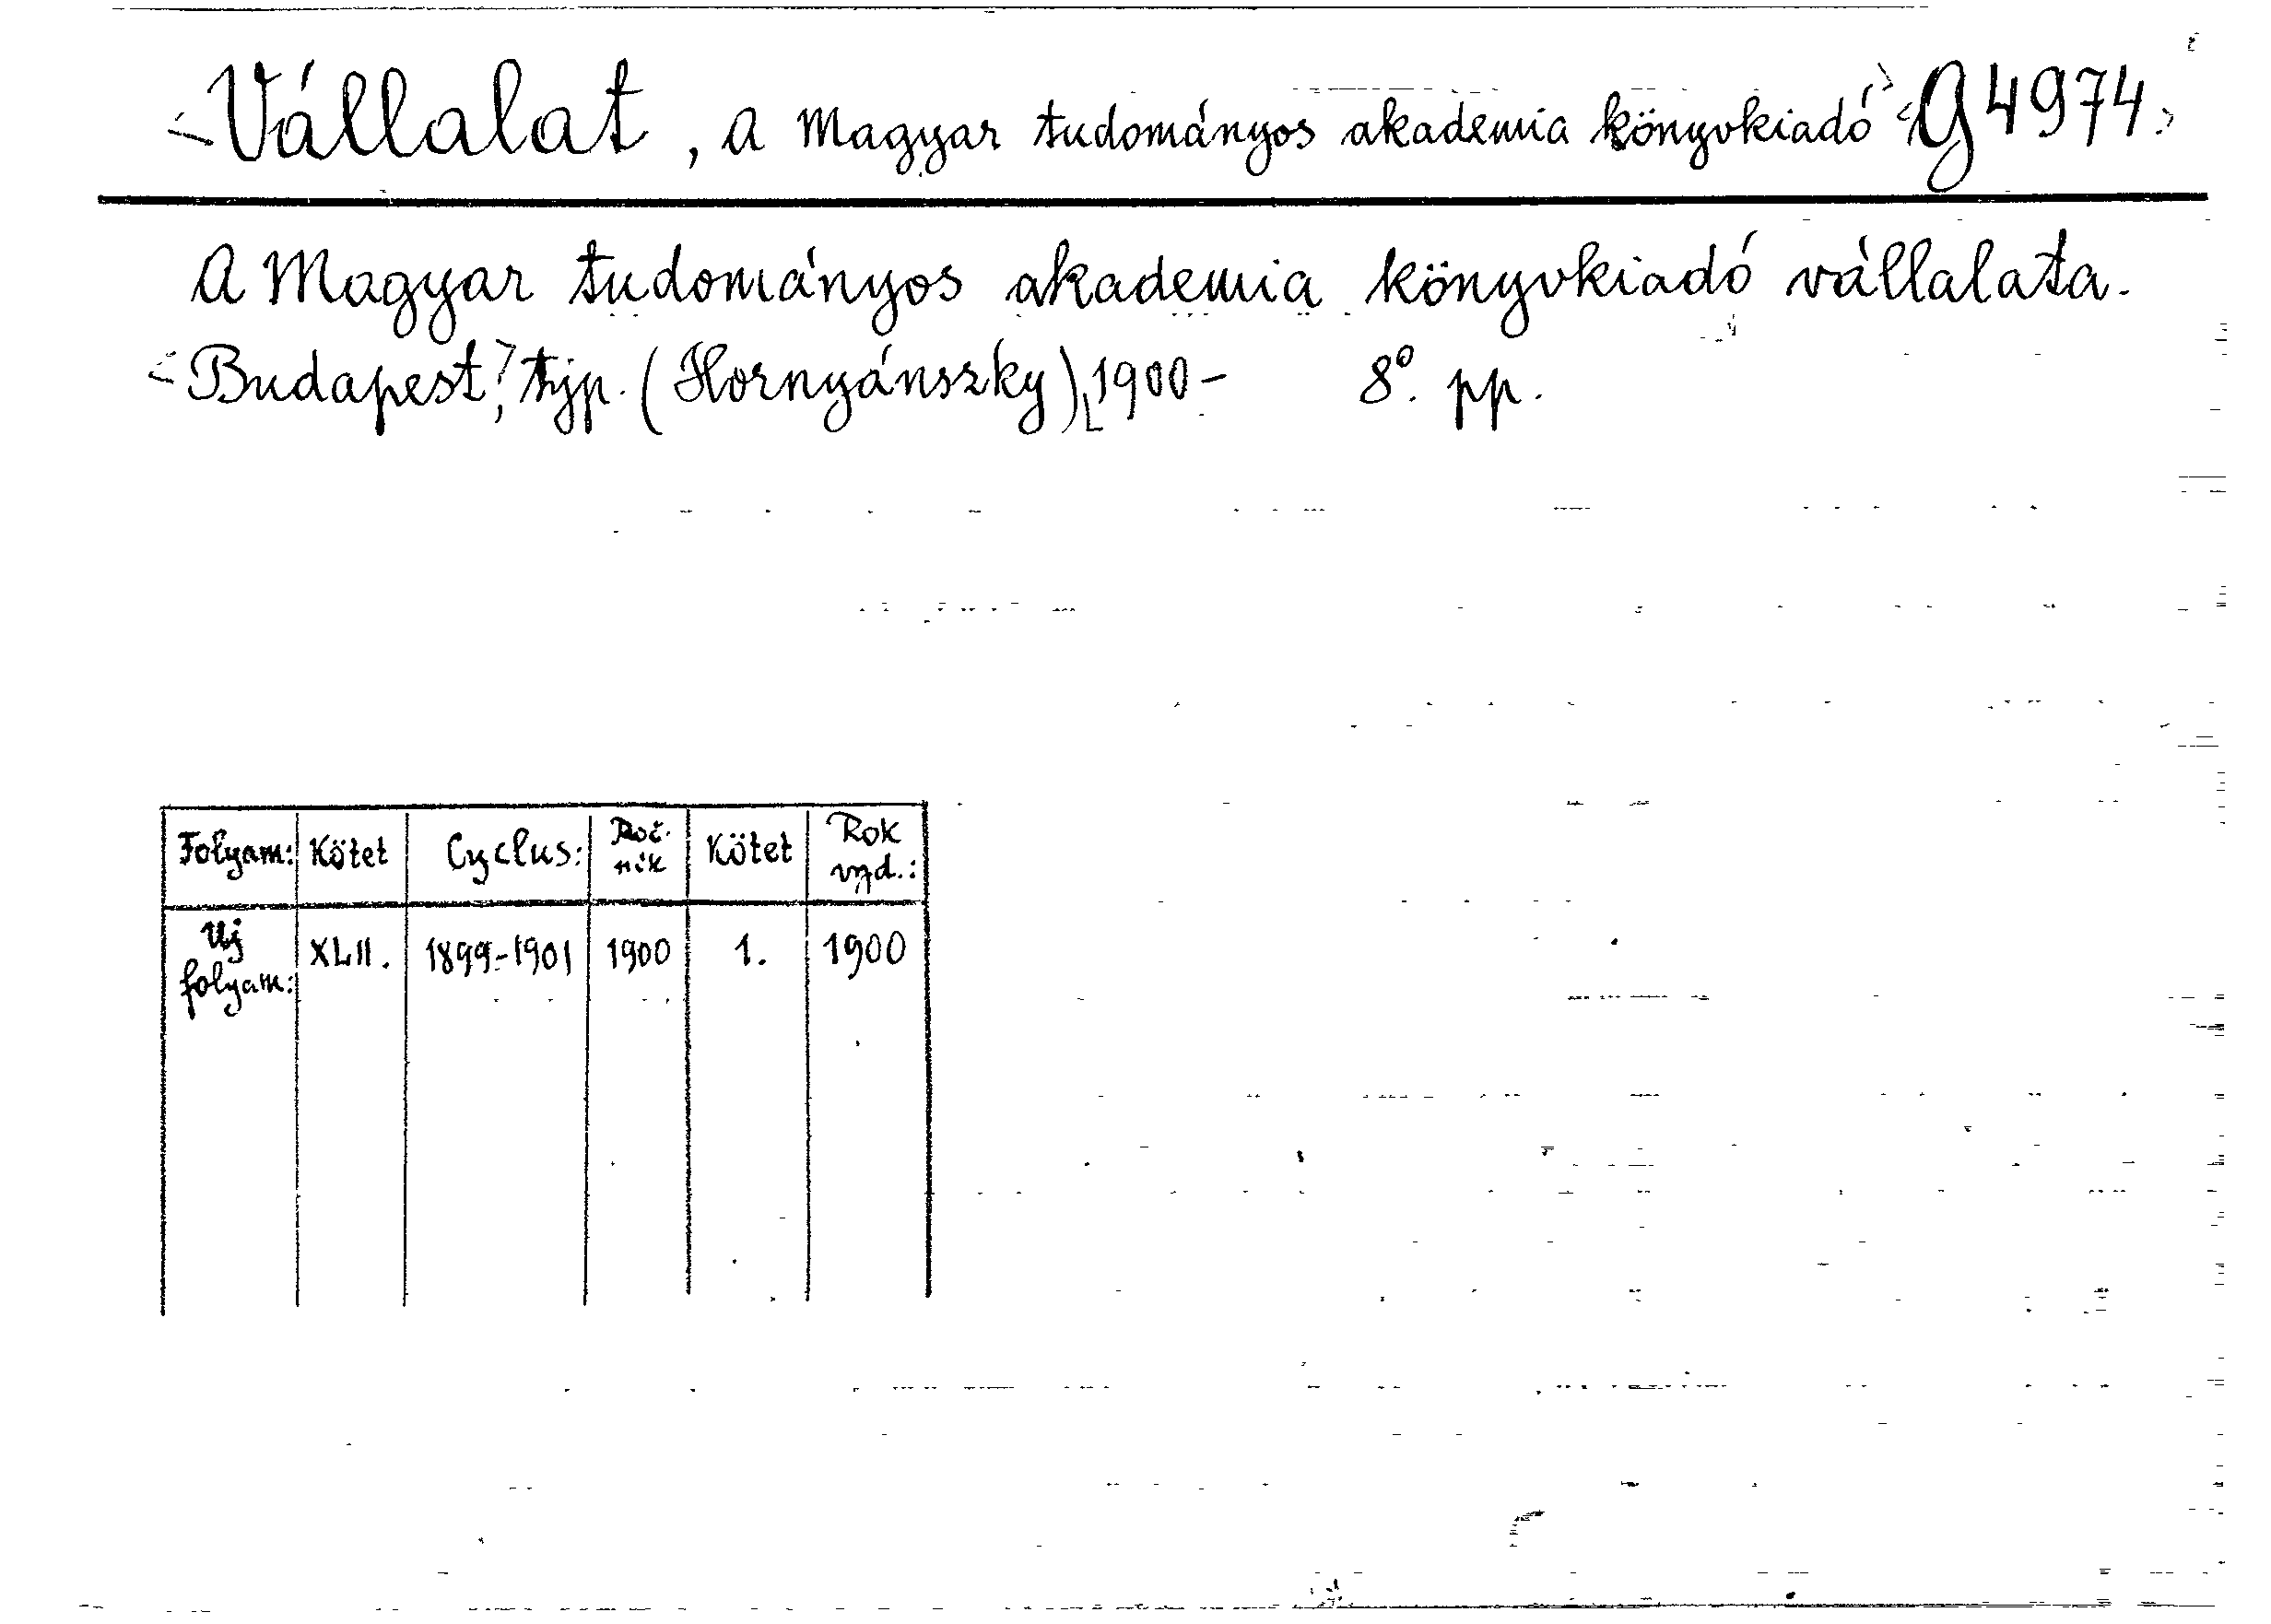 Vállalat, A Magyar tudományos akademia könyvkiadó G 4974.
A Magyar tudományos akademia könyvkiadó vállalata.
Budapest, typ. (Hornyánszky), 1900- 8° pp.
Folyam: Kötet Cyclus: Roč. Kötet Rok
nik vyd.:
Uj XLII. 1899-1901 1900 1. 1900
folyam: